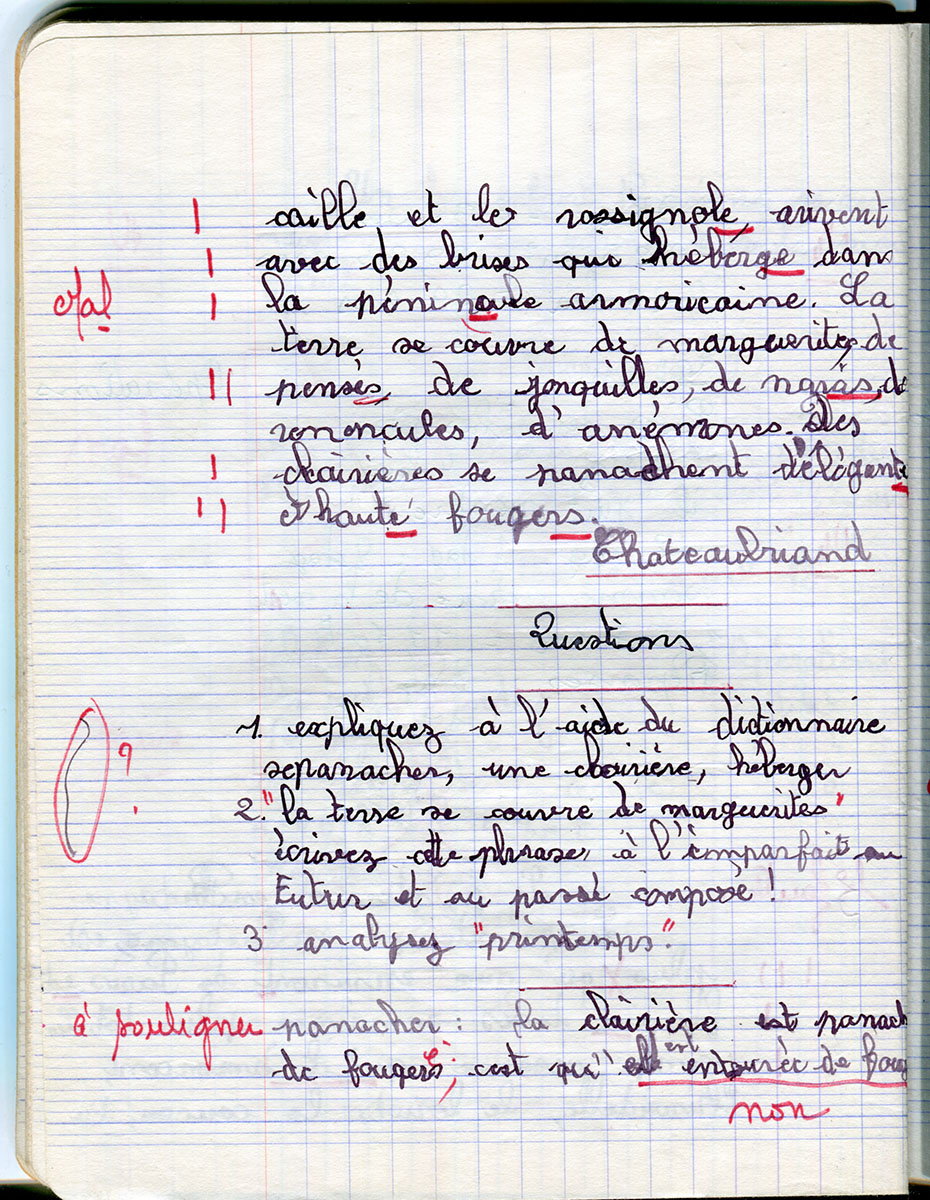 caille et le rossignole, arivent
avec des brises qui hébérge dans
Mal la péninsule armoricaine. La
terre se couvre de marguerites, de
pensés, de jonquilles, de de
renoncules, d'anémones. Des
clairières se panachent d'élégents
et hauté fougers.
Chateaubriand
Questions
1. expliquez à l'aide du dictionnaire
se panacher, une clairière, héberger
? 2. "la terre se couvre de marguerites"
écrivez cette phrase, à l'imparfait au
Futur et au passé composé !
3. analysez "printemps".
à souligner panacher : la clairière est panach
de fougers, cest qu'elle est entourée de foug
non